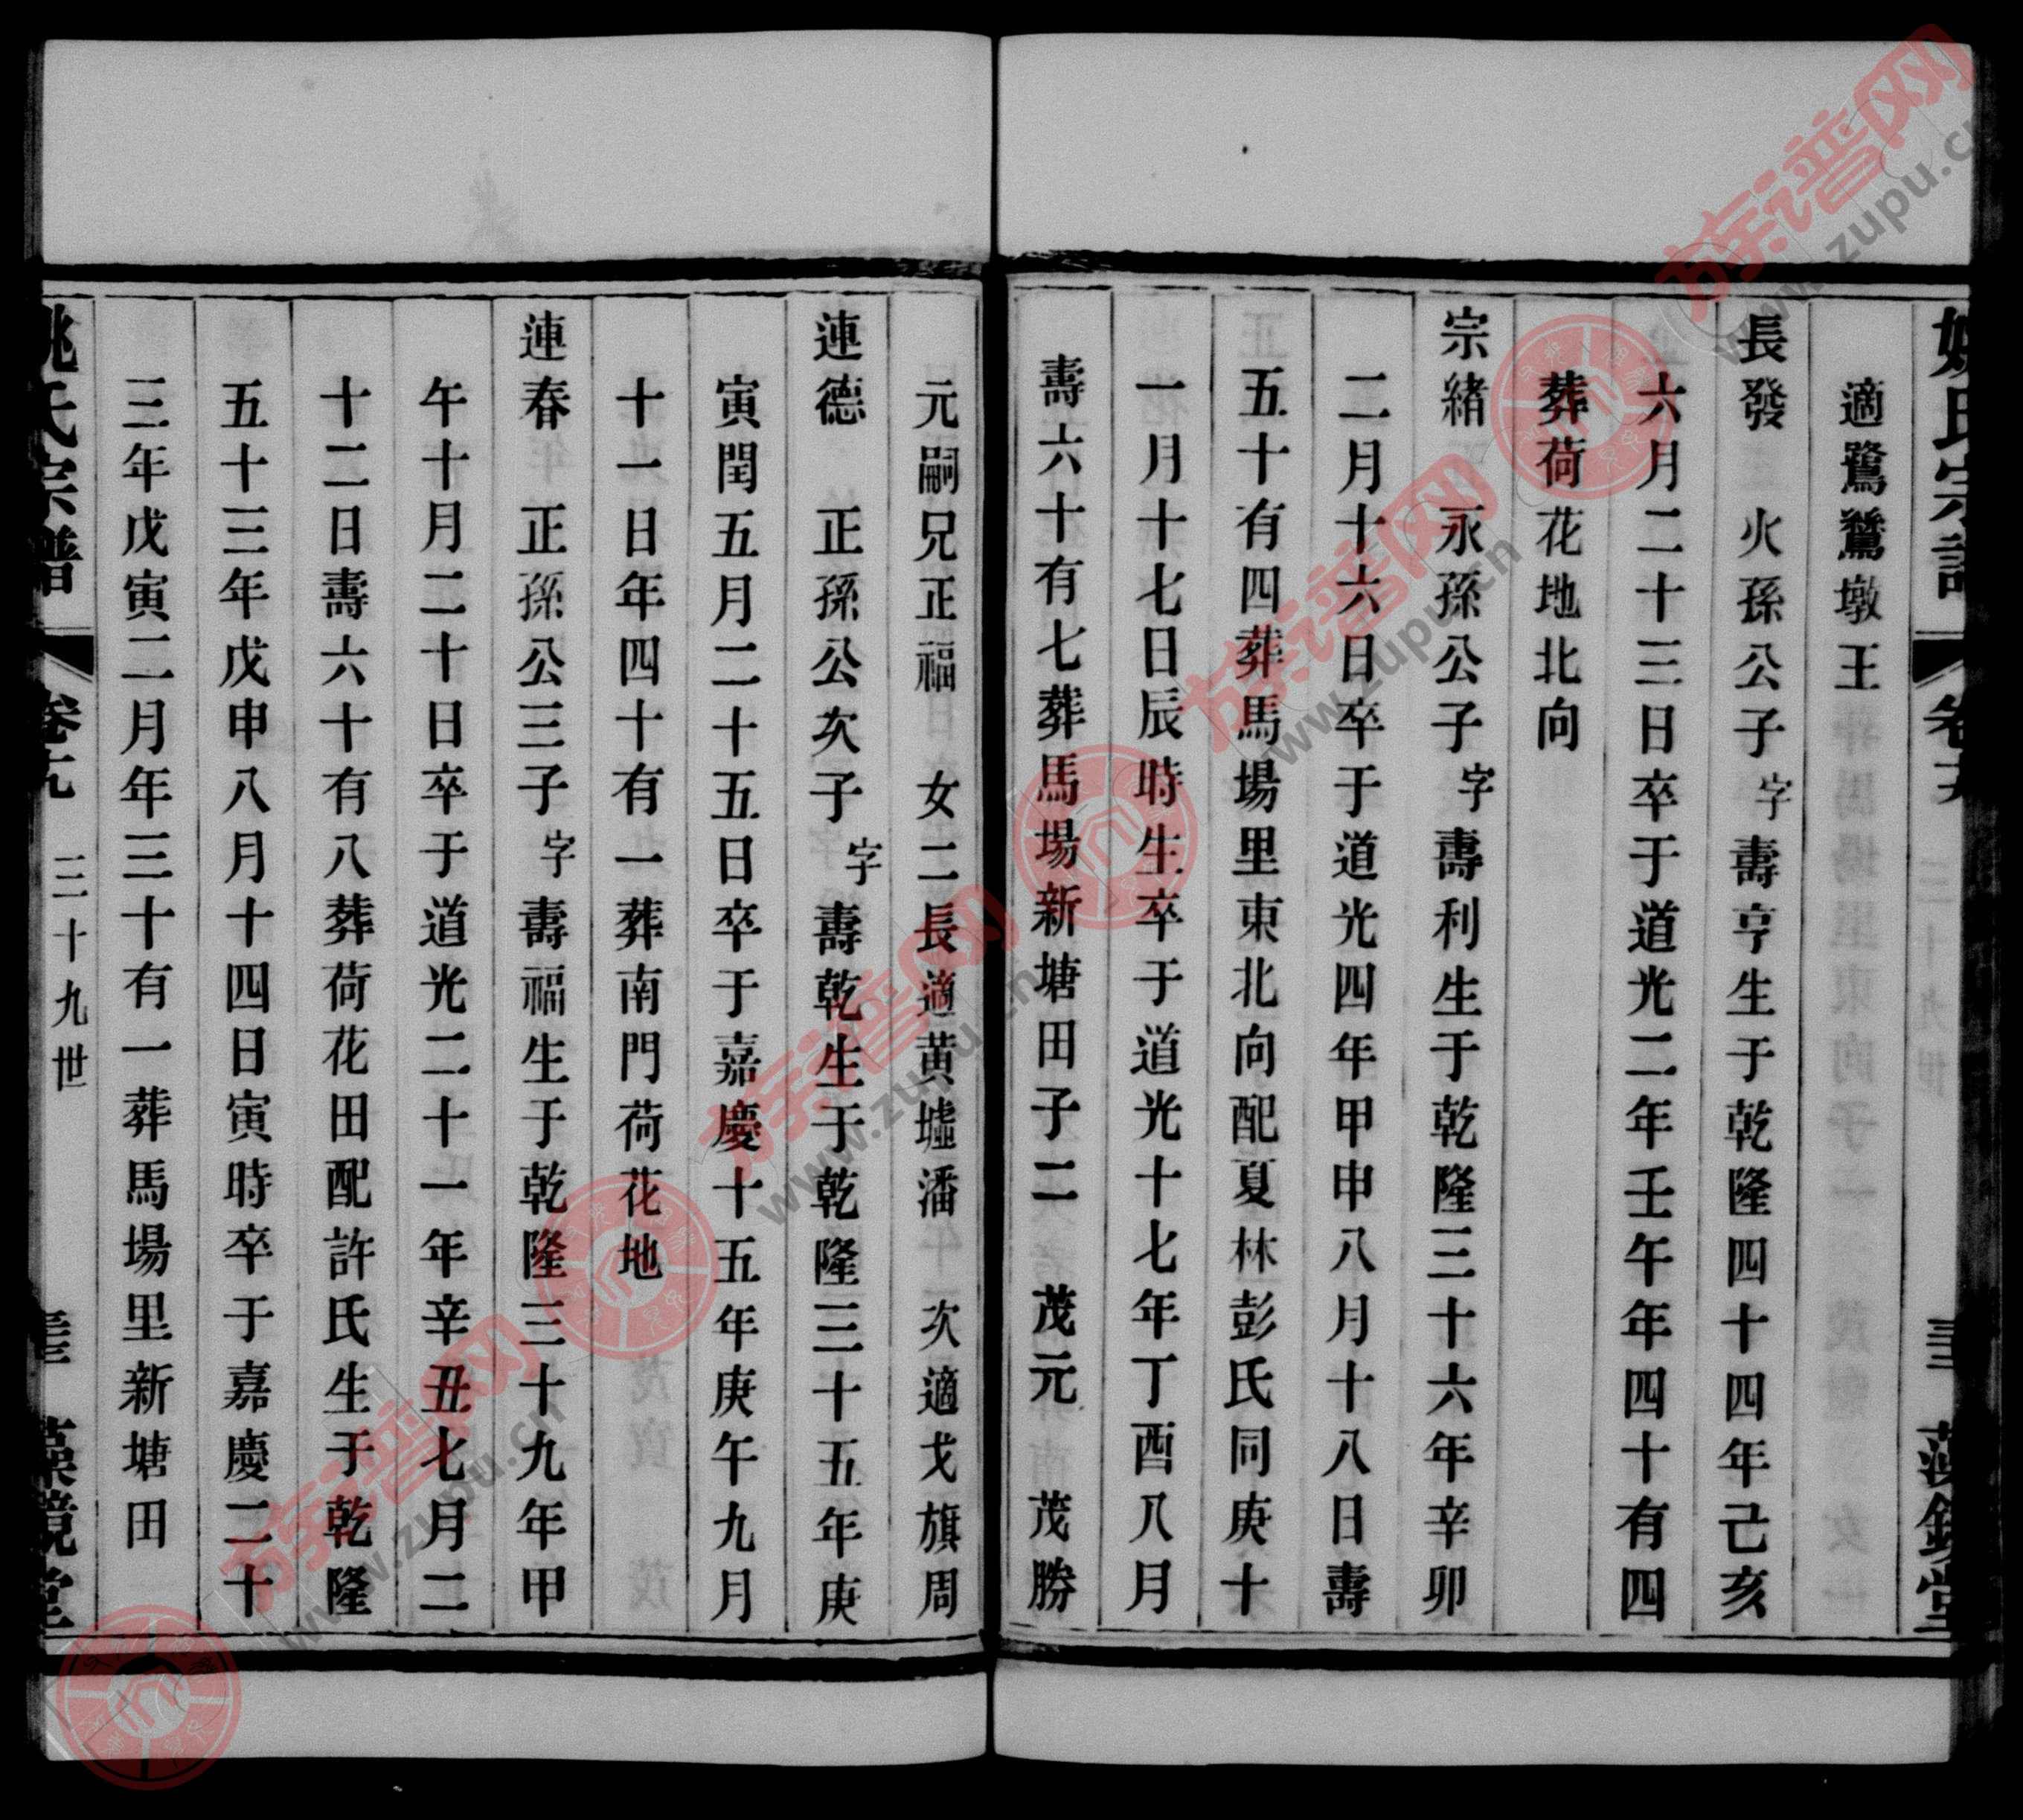 適鷺鷥墩王
長發　火孫公子字壽亨生于乾隆四十四年己亥
六月二十三日卒于道光二年壬午年四十有四
葬荷花地北向
宗緒　永孫公子字壽利生于乾隆三十六年辛卯
二月十六日卒于道光四年甲申八月十八日壽
五十有四葬馬場里東北向配夏林彭氏同庚十
一月十七日辰時生卒于道光十七年丁酉八月
壽六十有七葬馬場新塘田子二　茂元　茂勝
元嗣兄正福　女二長適黄墟潘　次適戈旗周
連德　正孫公次子字壽乾生于乾隆三十五年庚
寅閏五月二十五日卒于嘉慶十五年庚午九月
十一日年四十有一葬南門荷花地
連春　正孫公三子字壽福生于乾隆三十九年甲
午十月二十日卒于道光二十一年辛丑七月二
十二日壽六十有八葬荷花田配許氏生于乾隆
五十三年戊申八月十四日寅時卒于嘉慶二十
三年戊寅二月年三十有一葬馬場里新塘田
姚氏宗譜　卷　三十九世　藻鏡堂
族谱网
www.zupu.cn
族谱网
www.zupu.cn
族谱网
www.zupu.cn
族谱网
www.zupu.cn